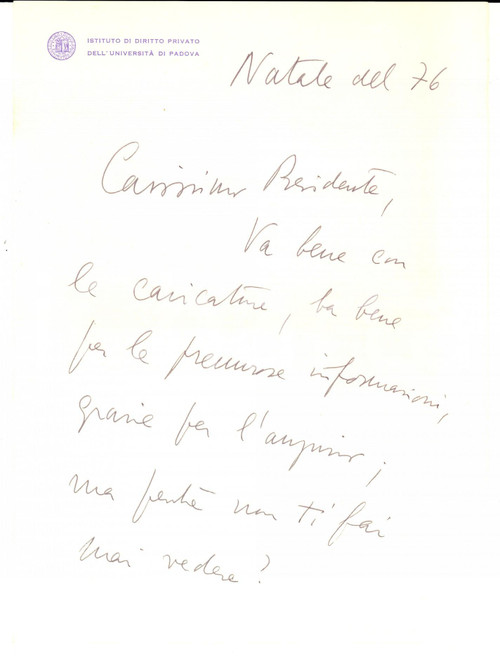 ISTITUTO DI DIRITTO PRIVATO
DELL'UNIVERSITÀ DI PADOVA
Natale del 76
Carissimo Presidente,
Va bene con
le caricature, va bene
per le premurose informazioni,
grazie per l'augurio;
ma perchè non ti fai
mai vedere?